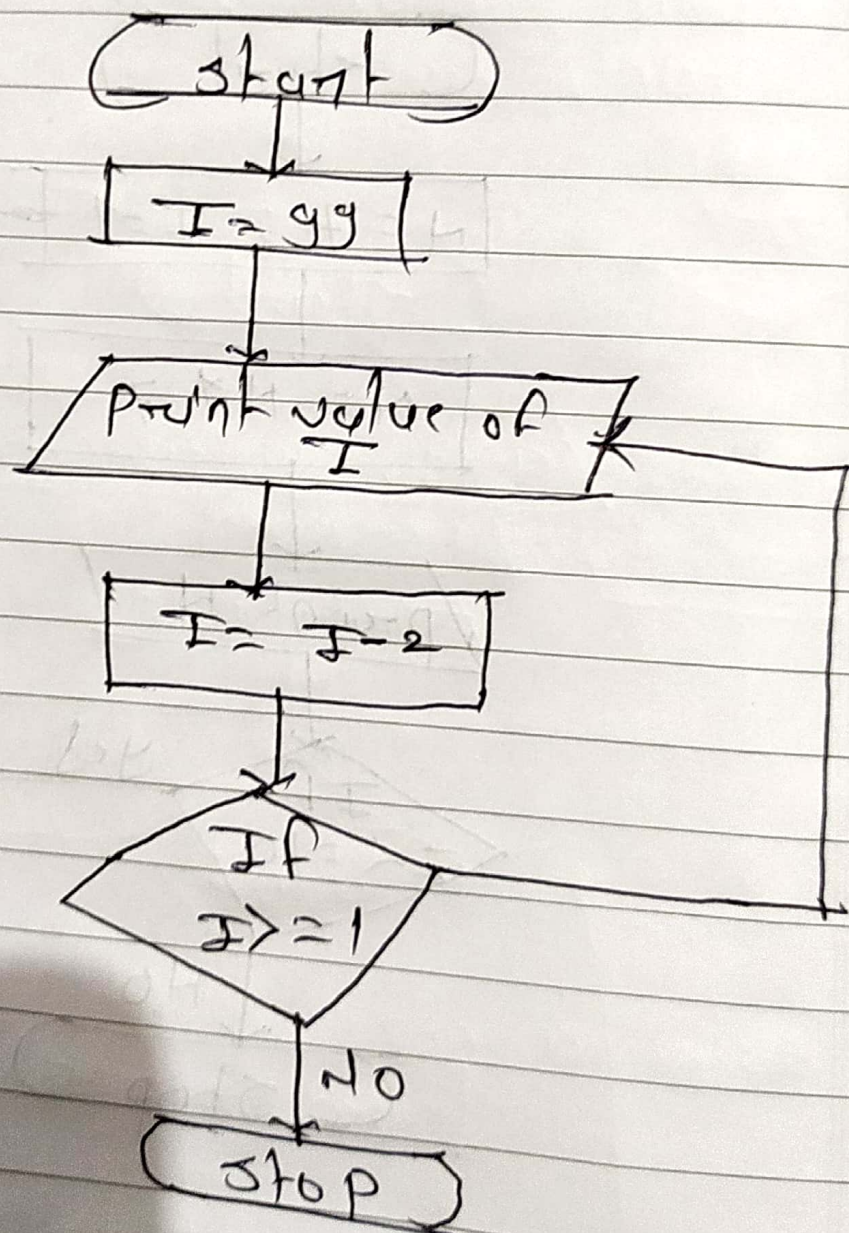 Start
I = 99
Print value of
I
I = I-2
If
I>=1
NO
Stop